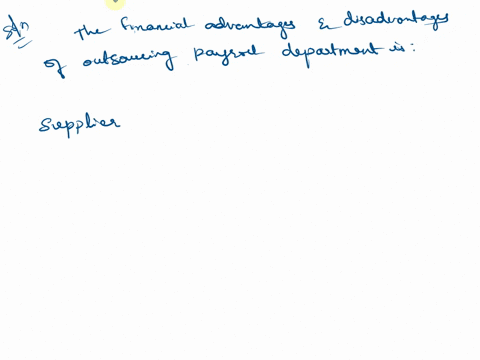 Sln The financial advantages & disadvantages
of outsourcing payroll department is:
Supplier